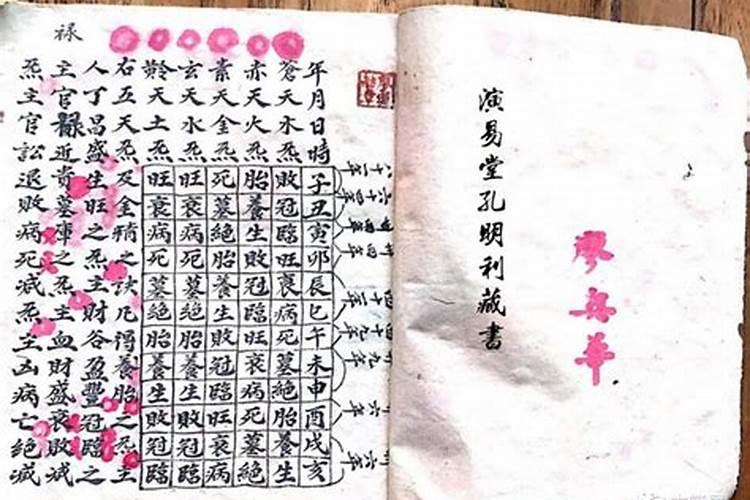 廖華
演易堂孔明利藏書
年月日時子丑寅卯辰巳午未申酉戌亥
蒼天木炁敗冠臨旺衰病死墓絶胎養生
赤天火炁胎養生敗冠臨旺衰病死墓絶
素天金炁死墓絶胎養生敗冠臨旺衰病
玄天水炁旺衰病死墓絶胎養生敗冠臨
黅天土炁旺衰病死墓絶胎養生敗冠臨
右五天炁及金精之訣凡得養胎之炁主
人丁昌盛生旺之炁主財谷盈豐冠臨之
祿
主官祿近貴墓庫之炁主血財盛衰敗減
炁主官訟退敗病死減炁主凶病亡絶滅